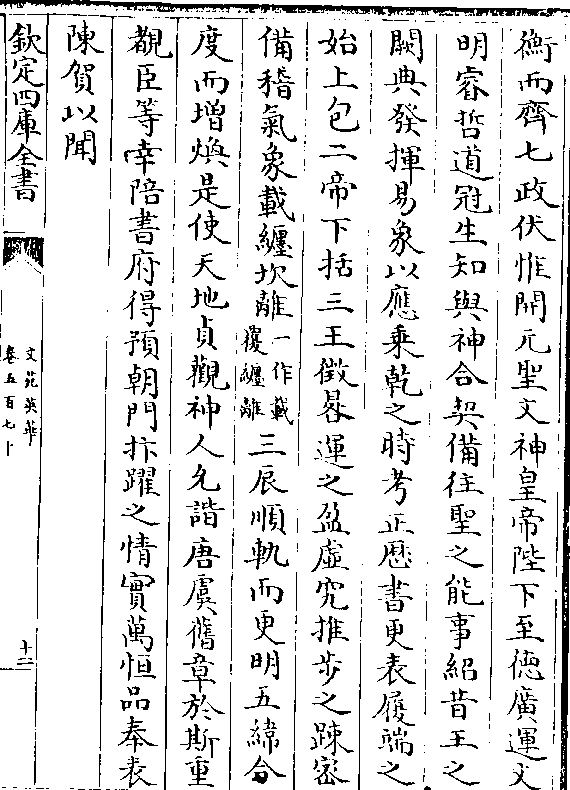 衡而齊七政伏惟開元聖文神皇帝陛下至徳廣運文
明睿哲道冠生知與神合契備往聖之能事紹昔王之
闕典發揮易象以應乗乾之時考正厯書更表履端之
始上包二帝下括三王徴晷運之盈虛究推歩之踈密
備稽氣象載纏坎離一作載覆纏離三辰順軌而更明五緯合
度而增煥是使天地貞觀神人允諧唐虞舊章於斯重
覩臣等幸陪書府得預朝門抃躍之情實萬恒品奉表
陳賀以聞
欽定四庫全書
文苑英華
卷五百七十
十二